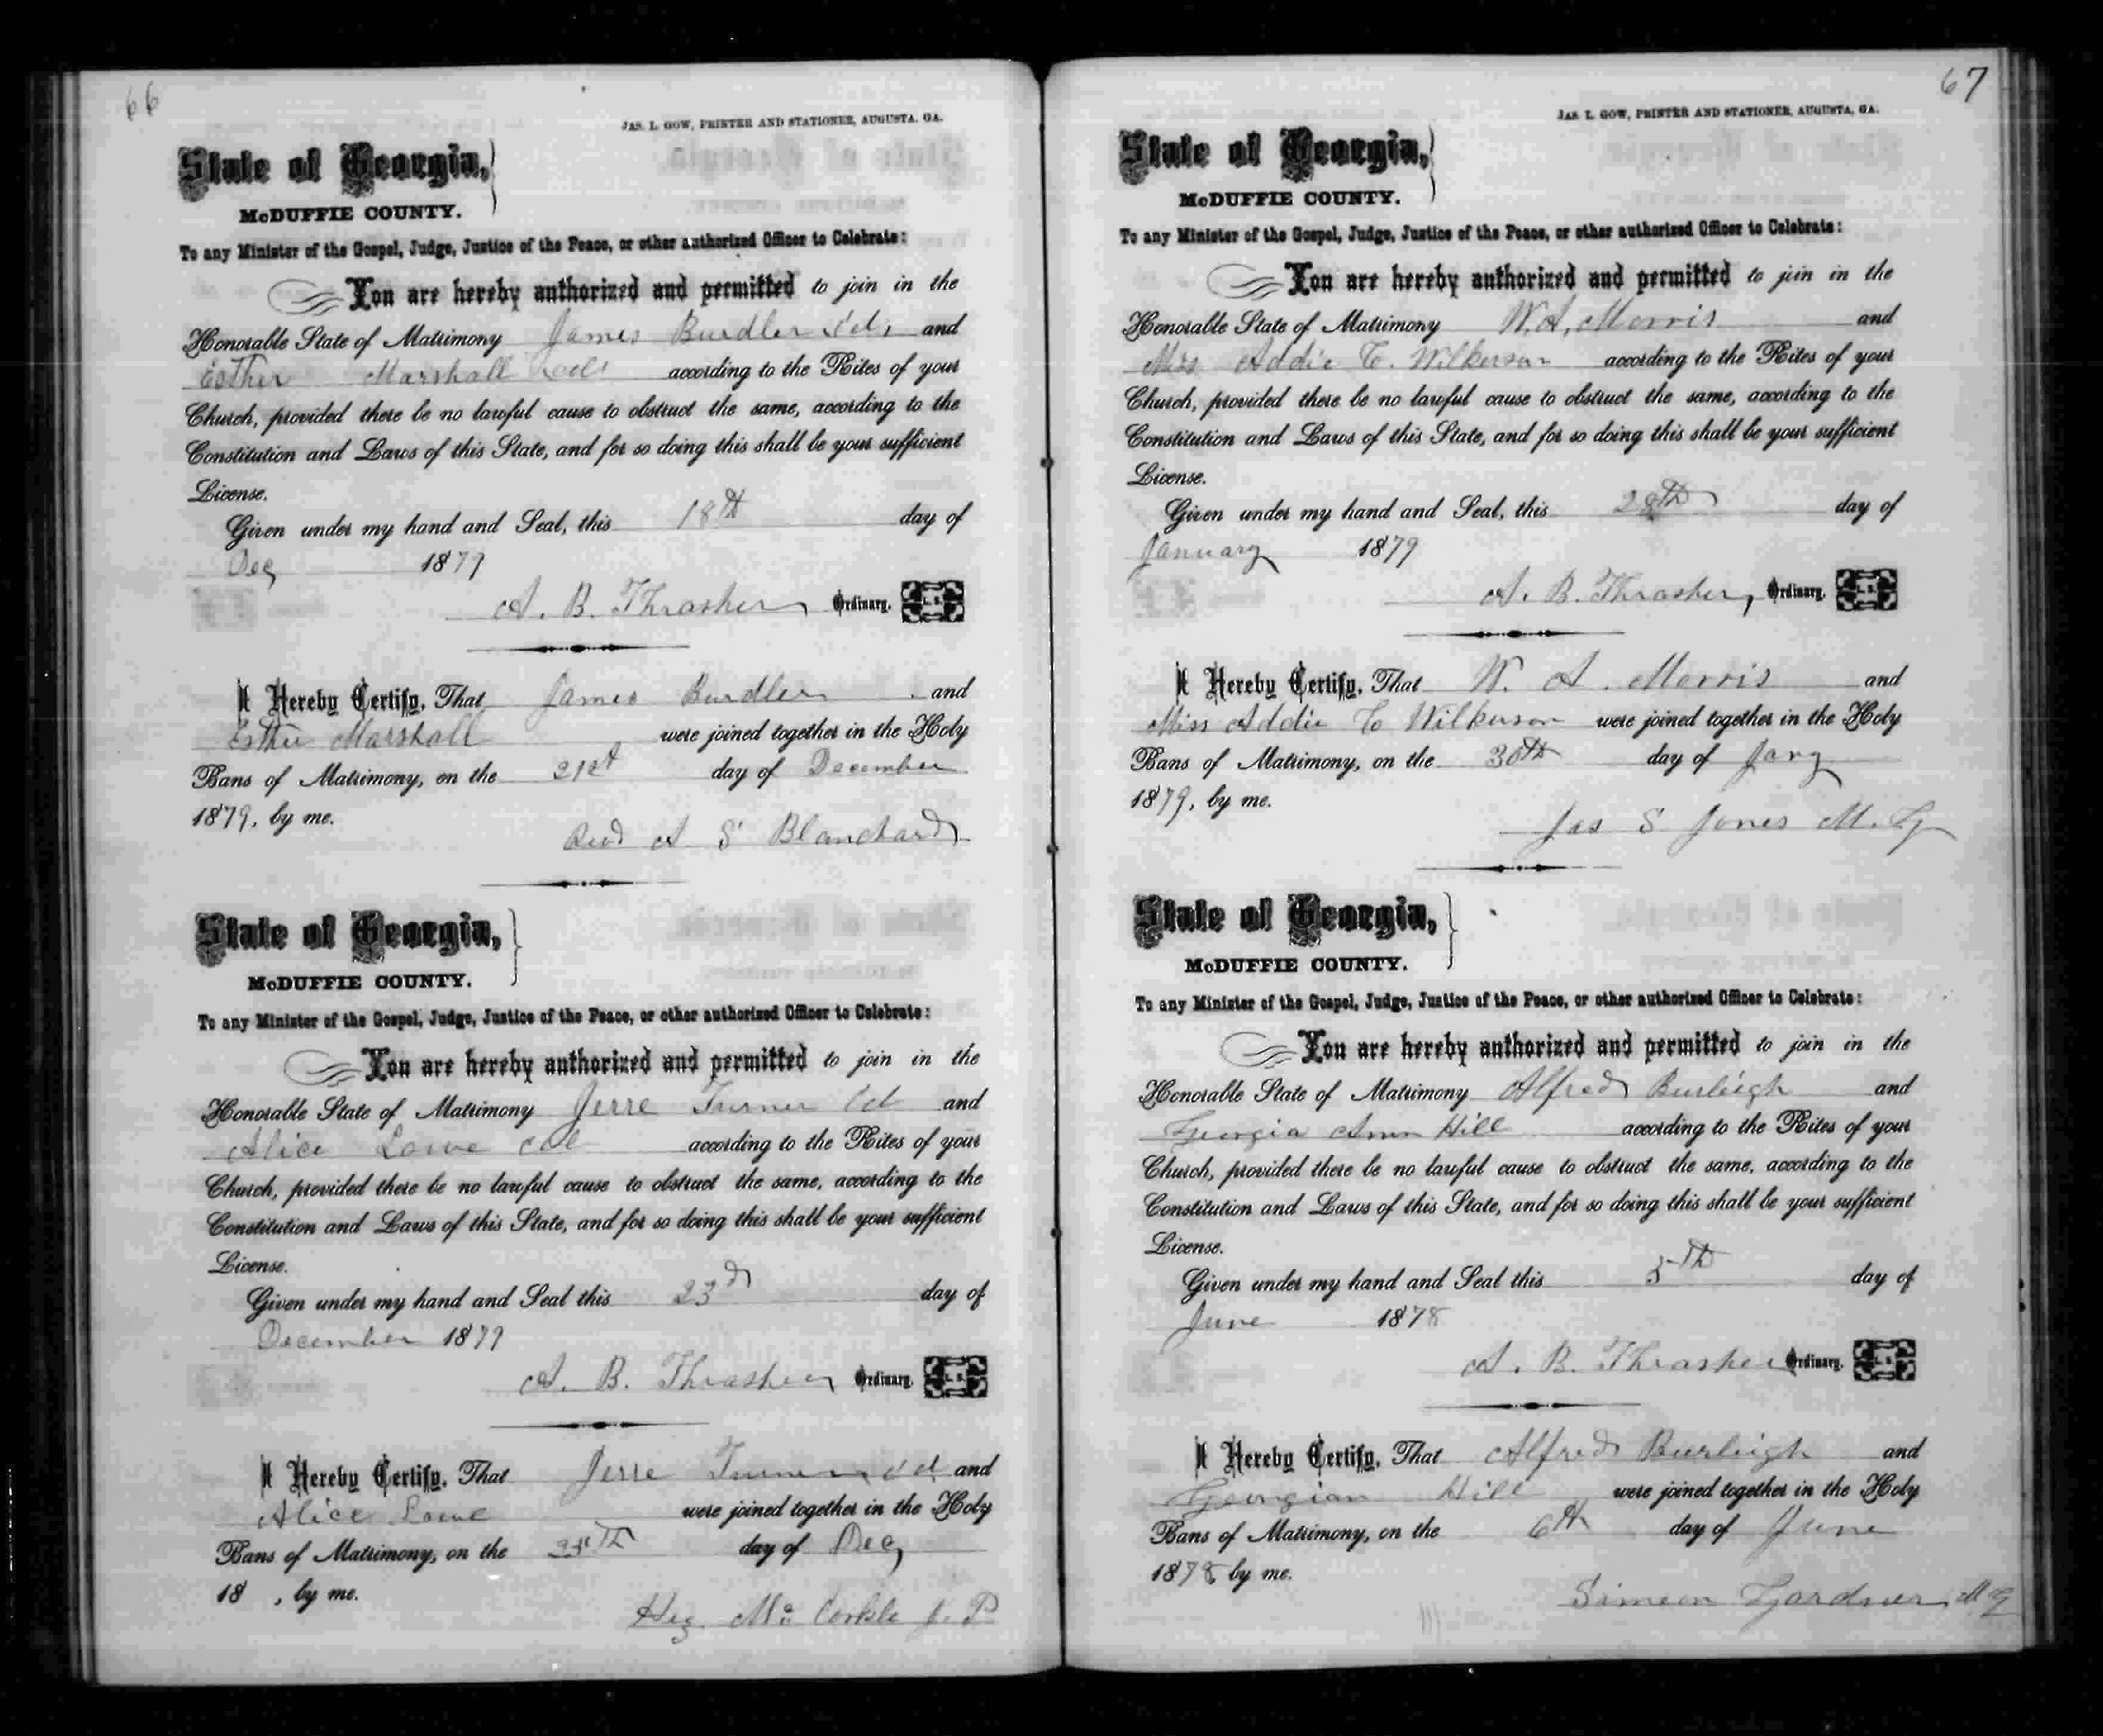 66
JAS. L. GOW, PRINTER AND STATIONER, AUGUSTA, GA.
State of Georgia,
McDUFFIE COUNTY.
To any Minister of the Gospel, Judge, Justice of the Peace, or other authorized Officer to Celebrate:
You are hereby authorized and permitted to join in the
Honorable State of Matrimony James Burdler Cd, and
Esther Marshall Col according to the Rites of your
Church, provided there be no lawful cause to obstruct the same, according to the
Constitution and Laws of this State, and for so doing this shall be your sufficient
License.
Given under my hand and Seal, this 18th day of
Dec 1879
A. B. Thrasher Ordinary. L. S.
I Hereby Certify, That James Burdler and
Esther Marshall were joined together in the Holy
Bans of Matrimony, on the 21st day of December
1879, by me.
Revd A S Blanchard
State of Georgia,
McDUFFIE COUNTY.
To any Minister of the Gospel, Judge, Justice of the Peace, or other authorized Officer to Celebrate:
You are hereby authorized and permitted to join in the
Honorable State of Matrimony Jerre Turner Cd and
Alice Lowe Col according to the Rites of your
Church, provided there be no lawful cause to obstruct the same, according to the
Constitution and Laws of this State, and for so doing this shall be your sufficient
License.
Given under my hand and Seal this 23d day of
December 1879
A. B. Thrasher Ordinary. L. S.
I Hereby Certify, That Jerre Turner Cd and
Alice Lowe were joined together in the Holy
Bans of Matrimony, on the day of Dec,
18 , by me.
Hez Mc Corkle J. P
67
JAS. L. GOW, PRINTER AND STATIONER, AUGUSTA, GA.
State of Georgia,
McDUFFIE COUNTY.
To any Minister of the Gospel, Judge, Justice of the Peace, or other authorized Officer to Celebrate:
You are hereby authorized and permitted to join in the
Honorable State of Matrimony W. A. Morris and
Miss Addie C. Wilkerson according to the Rites of your
Church, provided there be no lawful cause to obstruct the same, according to the
Constitution and Laws of this State, and for so doing this shall be your sufficient
License.
Given under my hand and Seal, this 28th day of
January 1879
A. B. Thrasher, Ordinary. L. S.
I Hereby Certify, That W. A. Morris and
Miss Addie C Wilkerson were joined together in the Holy
Bans of Matrimony, on the 30th day of Jany
1879, by me.
Jas S Jones M. G
State of Georgia,
McDUFFIE COUNTY.
To any Minister of the Gospel, Judge, Justice of the Peace, or other authorized Officer to Celebrate:
You are hereby authorized and permitted to join in the
Honorable State of Matrimony Alfred Burleigh and
Georgia Ann Hill according to the Rites of your
Church, provided there be no lawful cause to obstruct the same, according to the
Constitution and Laws of this State, and for so doing this shall be your sufficient
License.
Given under my hand and Seal this 5th day of
June 1878
A. B. Thrasher Ordinary. L. S.
I Hereby Certify, That Alfred Burleigh and
Georgian Hill were joined together in the Holy
Bans of Matrimony, on the 6th day of June
1878 by me.
Simeon Gardner M G